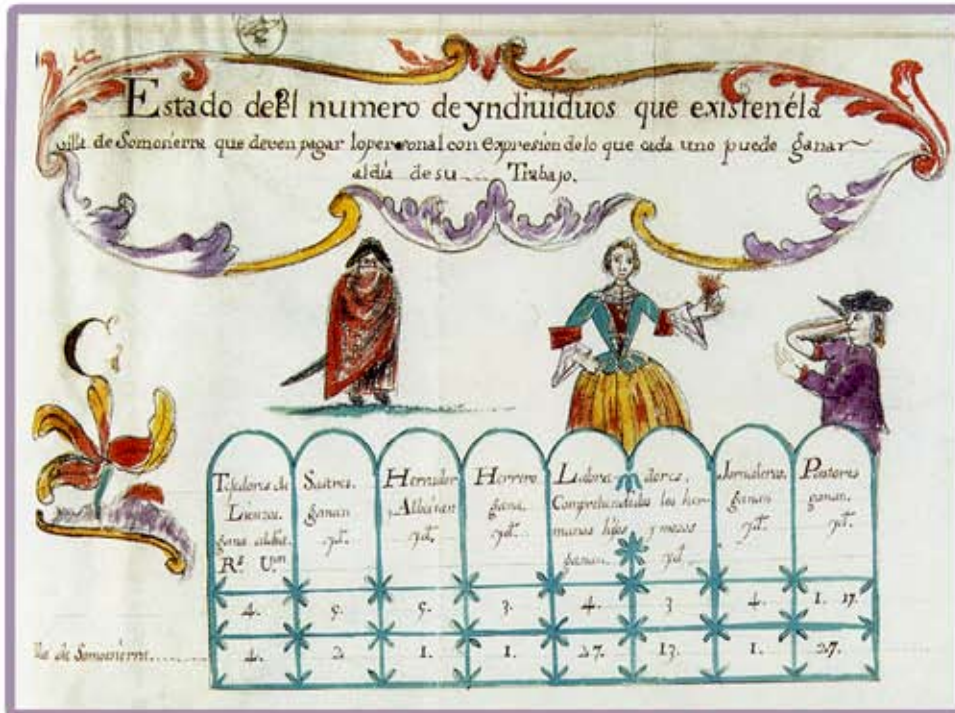 Estado deel numero de yndiuiduos que existen éla
villa de Somosierra que deven pagar lo personal con expresion de lo que cada uno puede ganar
al dia de su Trabajo.
Texedores de
Lienzos.
gana al dia.
Rs. Von
Sastres.
ganan
yd.
Herrador
Albeitar
yd.
Herrero
gana.
yd.
Labradores,
Comprehendidos los hermanos hijos y mozos
ganan. yd.
Jornaleros.
ganan
yd.
Pastores
ganan.
yd.
4. 5. 5. 3. 4. 3 4. 1. 17.
de Somosierra 4. 2 1. 1. 27. 13. 1. 27.